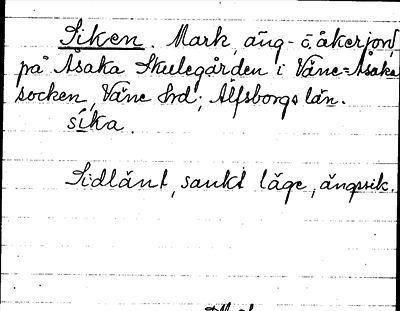 Siken. Mark, äng- o. åkerjord,
på Åsaka Skulegården i Väne-Åsaka
socken, Väne hrd; Älfsborgs län.
sika.
Sidlänt, sankt läge, ängssik.